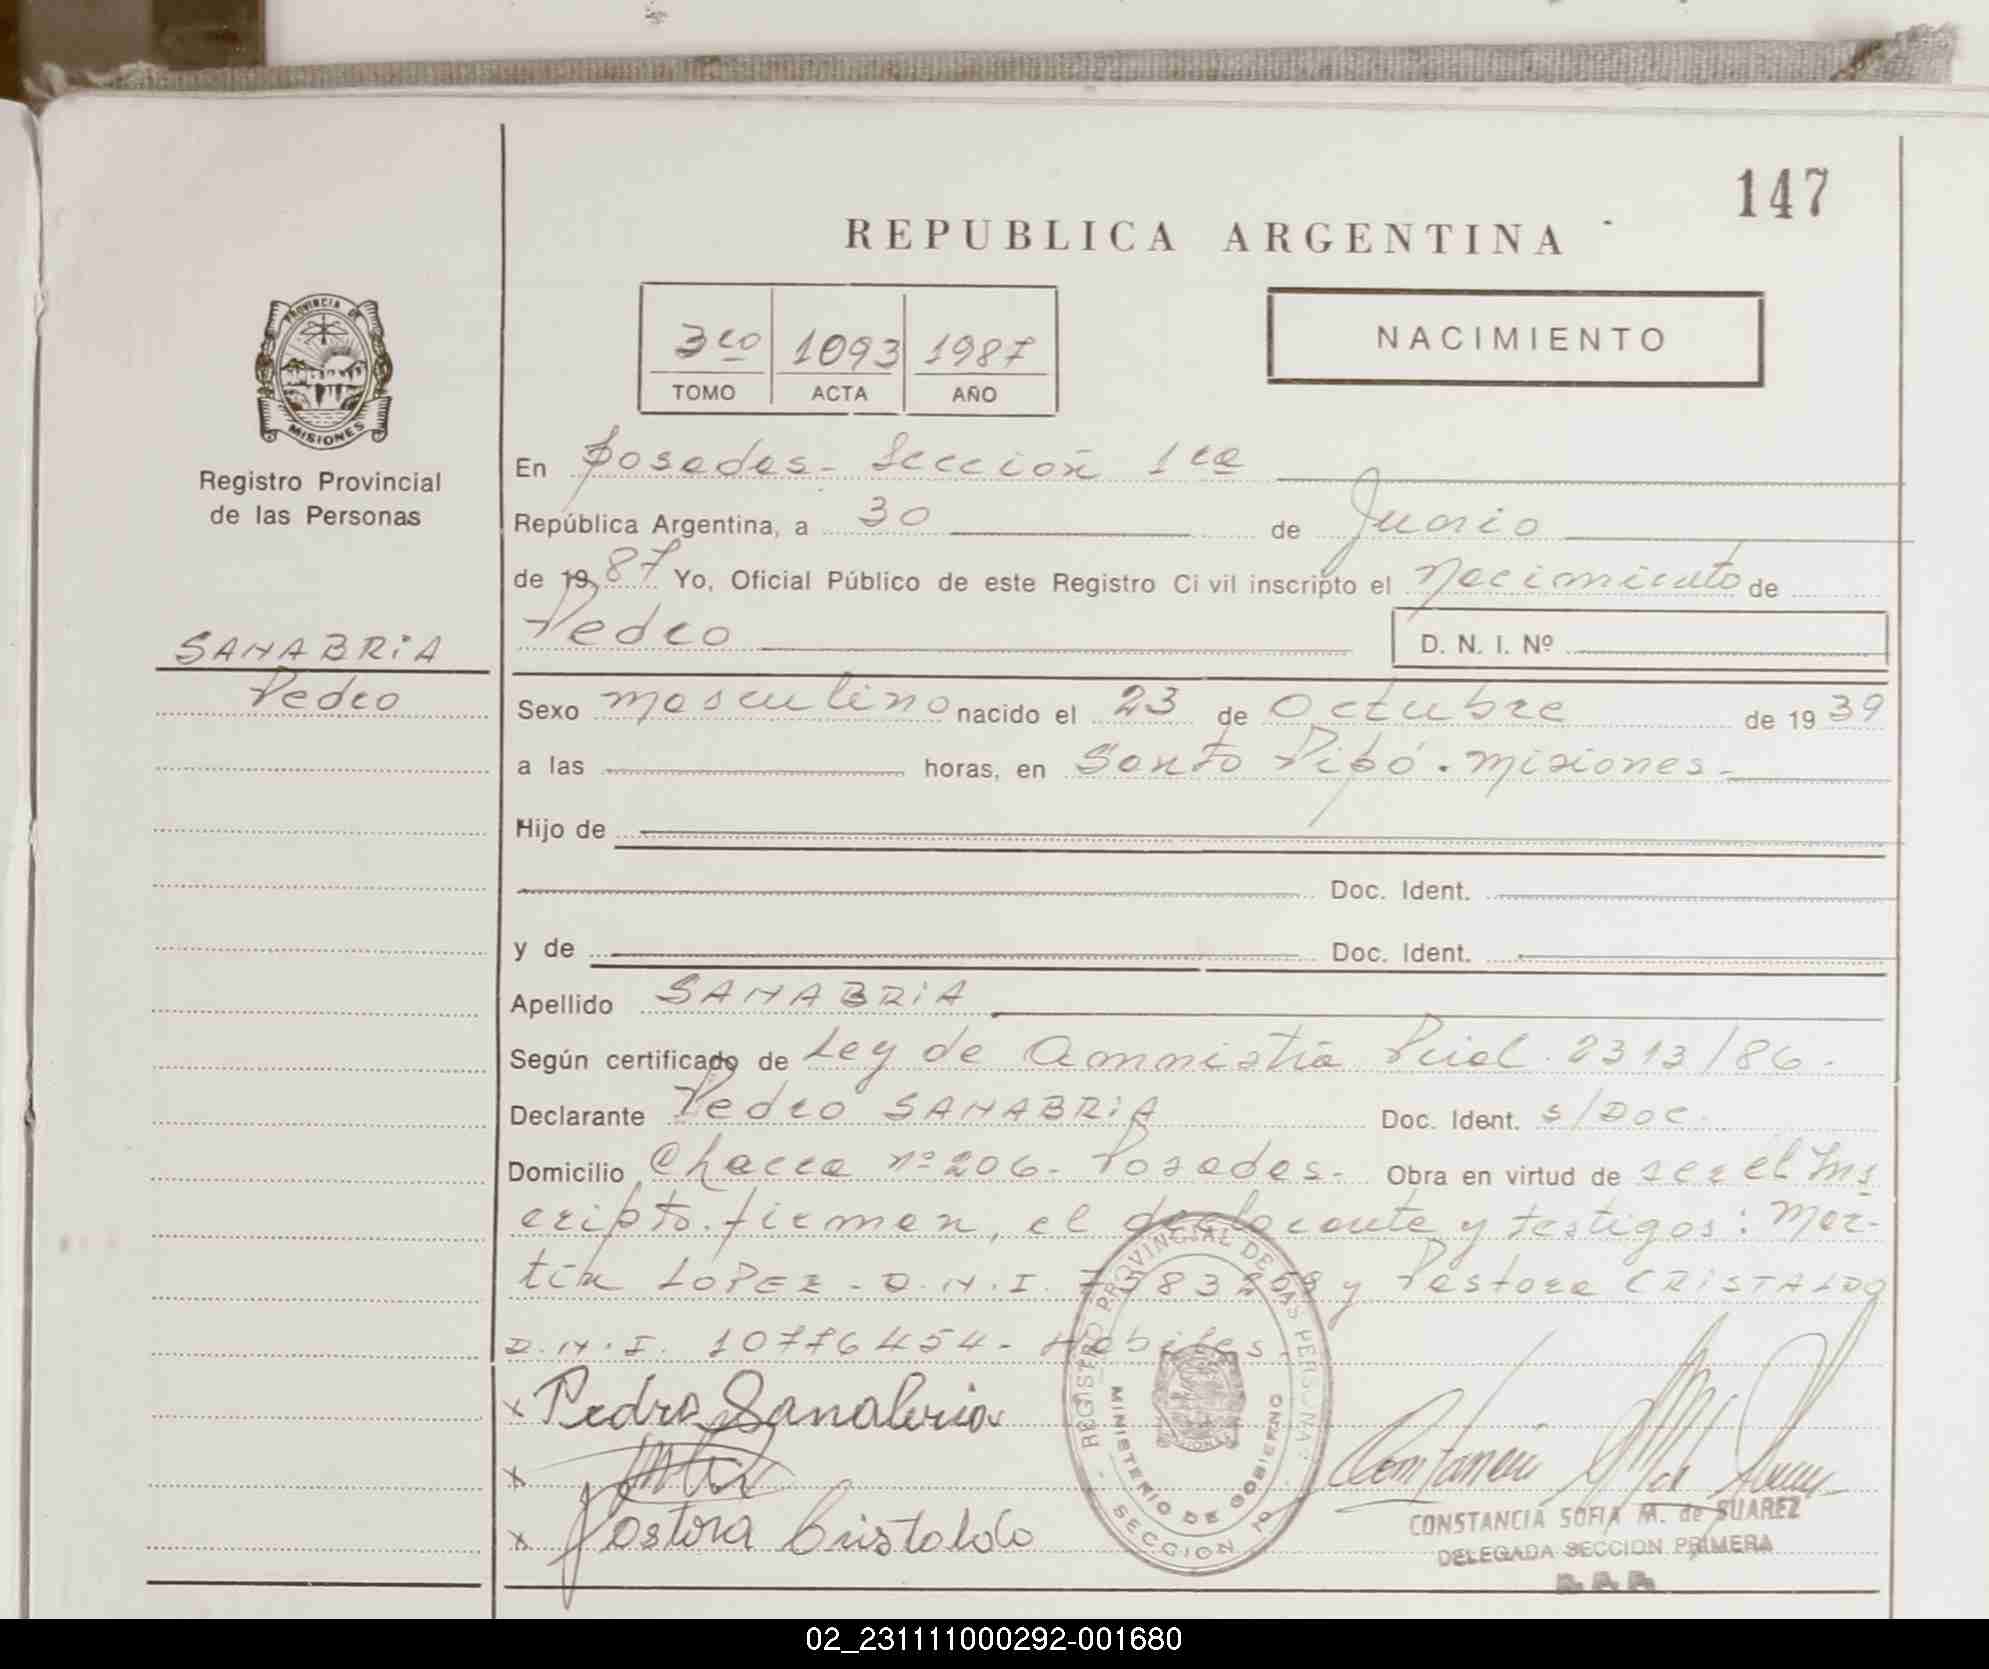 147
REPUBLICA ARGENTINA
PROVINCIA DE
MISIONES
Registro Provincial
de las Personas
3ro 1093 1987
TOMO ACTA AÑO
NACIMIENTO
En Posadas - Sección 1ra
República Argentina, a 30 de Junio
de 1987 Yo, Oficial Público de este Registro Civil inscripto el Nacimiento de
Pedro D. N. I. Nº
SANABRIA
Pedro
Sexo masculino nacido el 23 de Octubre de 1939
a las horas, en Santo Pipó. Misiones -
Hijo de
Doc. Ident.
y de Doc. Ident.
Apellido SANABRIA
Según certificado de Ley de Amnistía Pcial. 2313/86.
Declarante Pedro SANABRIA Doc. Ident. s/Doc.
Domicilio Chacra nº 206 - Posadas - Obra en virtud de ser el Ins
cripto. firman, el declarante y testigos: Mar-
tín LOPEZ - D.N.I. y Pastora CRISTALDO
D.N.I. 10776454 - Hábiles.
x Pedro Sanabria
x
x Pastora Cristaldo
REGISTRO PROVINCIAL DE LAS PERSONAS
MINISTERIO DE GOBIERNO
SECCION 1ª
CONSTANCIA SOFIA M. de SUAREZ
DELEGADA SECCION PRIMERA
02_231111000292-001680